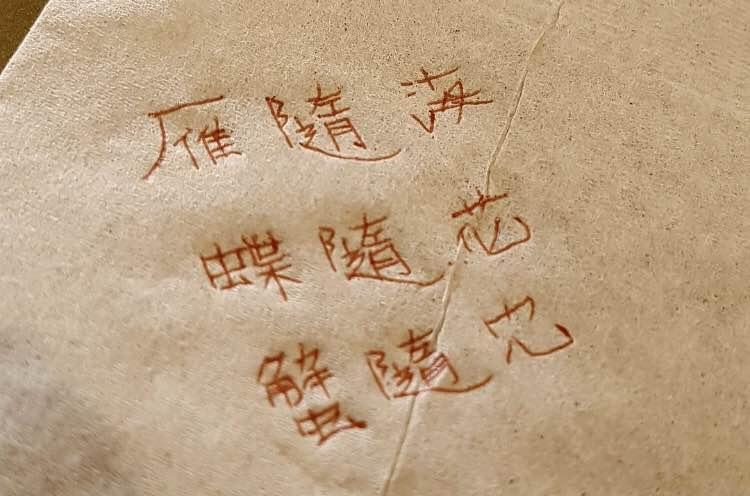 雁隨海
蝶隨花
蟹隨